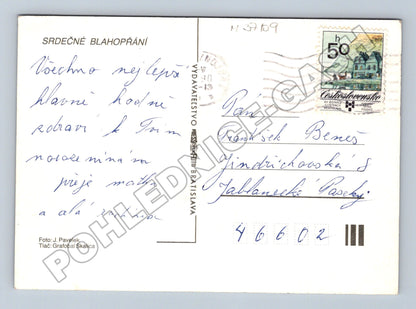 SRDEČNÉ BLAHOPŘÁNÍ
Všechno nejlepší
hlavně hodně
zdraví k Tvým
narozeninám
přeje
a
Foto: J. Pavelek
Tlač: Grafobal Skalica
VYDAVATEĽSTVO
BRATISLAVA
50 h
Československo
Pan
František Beneš
Jindřichovská 8
Jablonecké Paseky
46602
POHLEDNICE-GASH